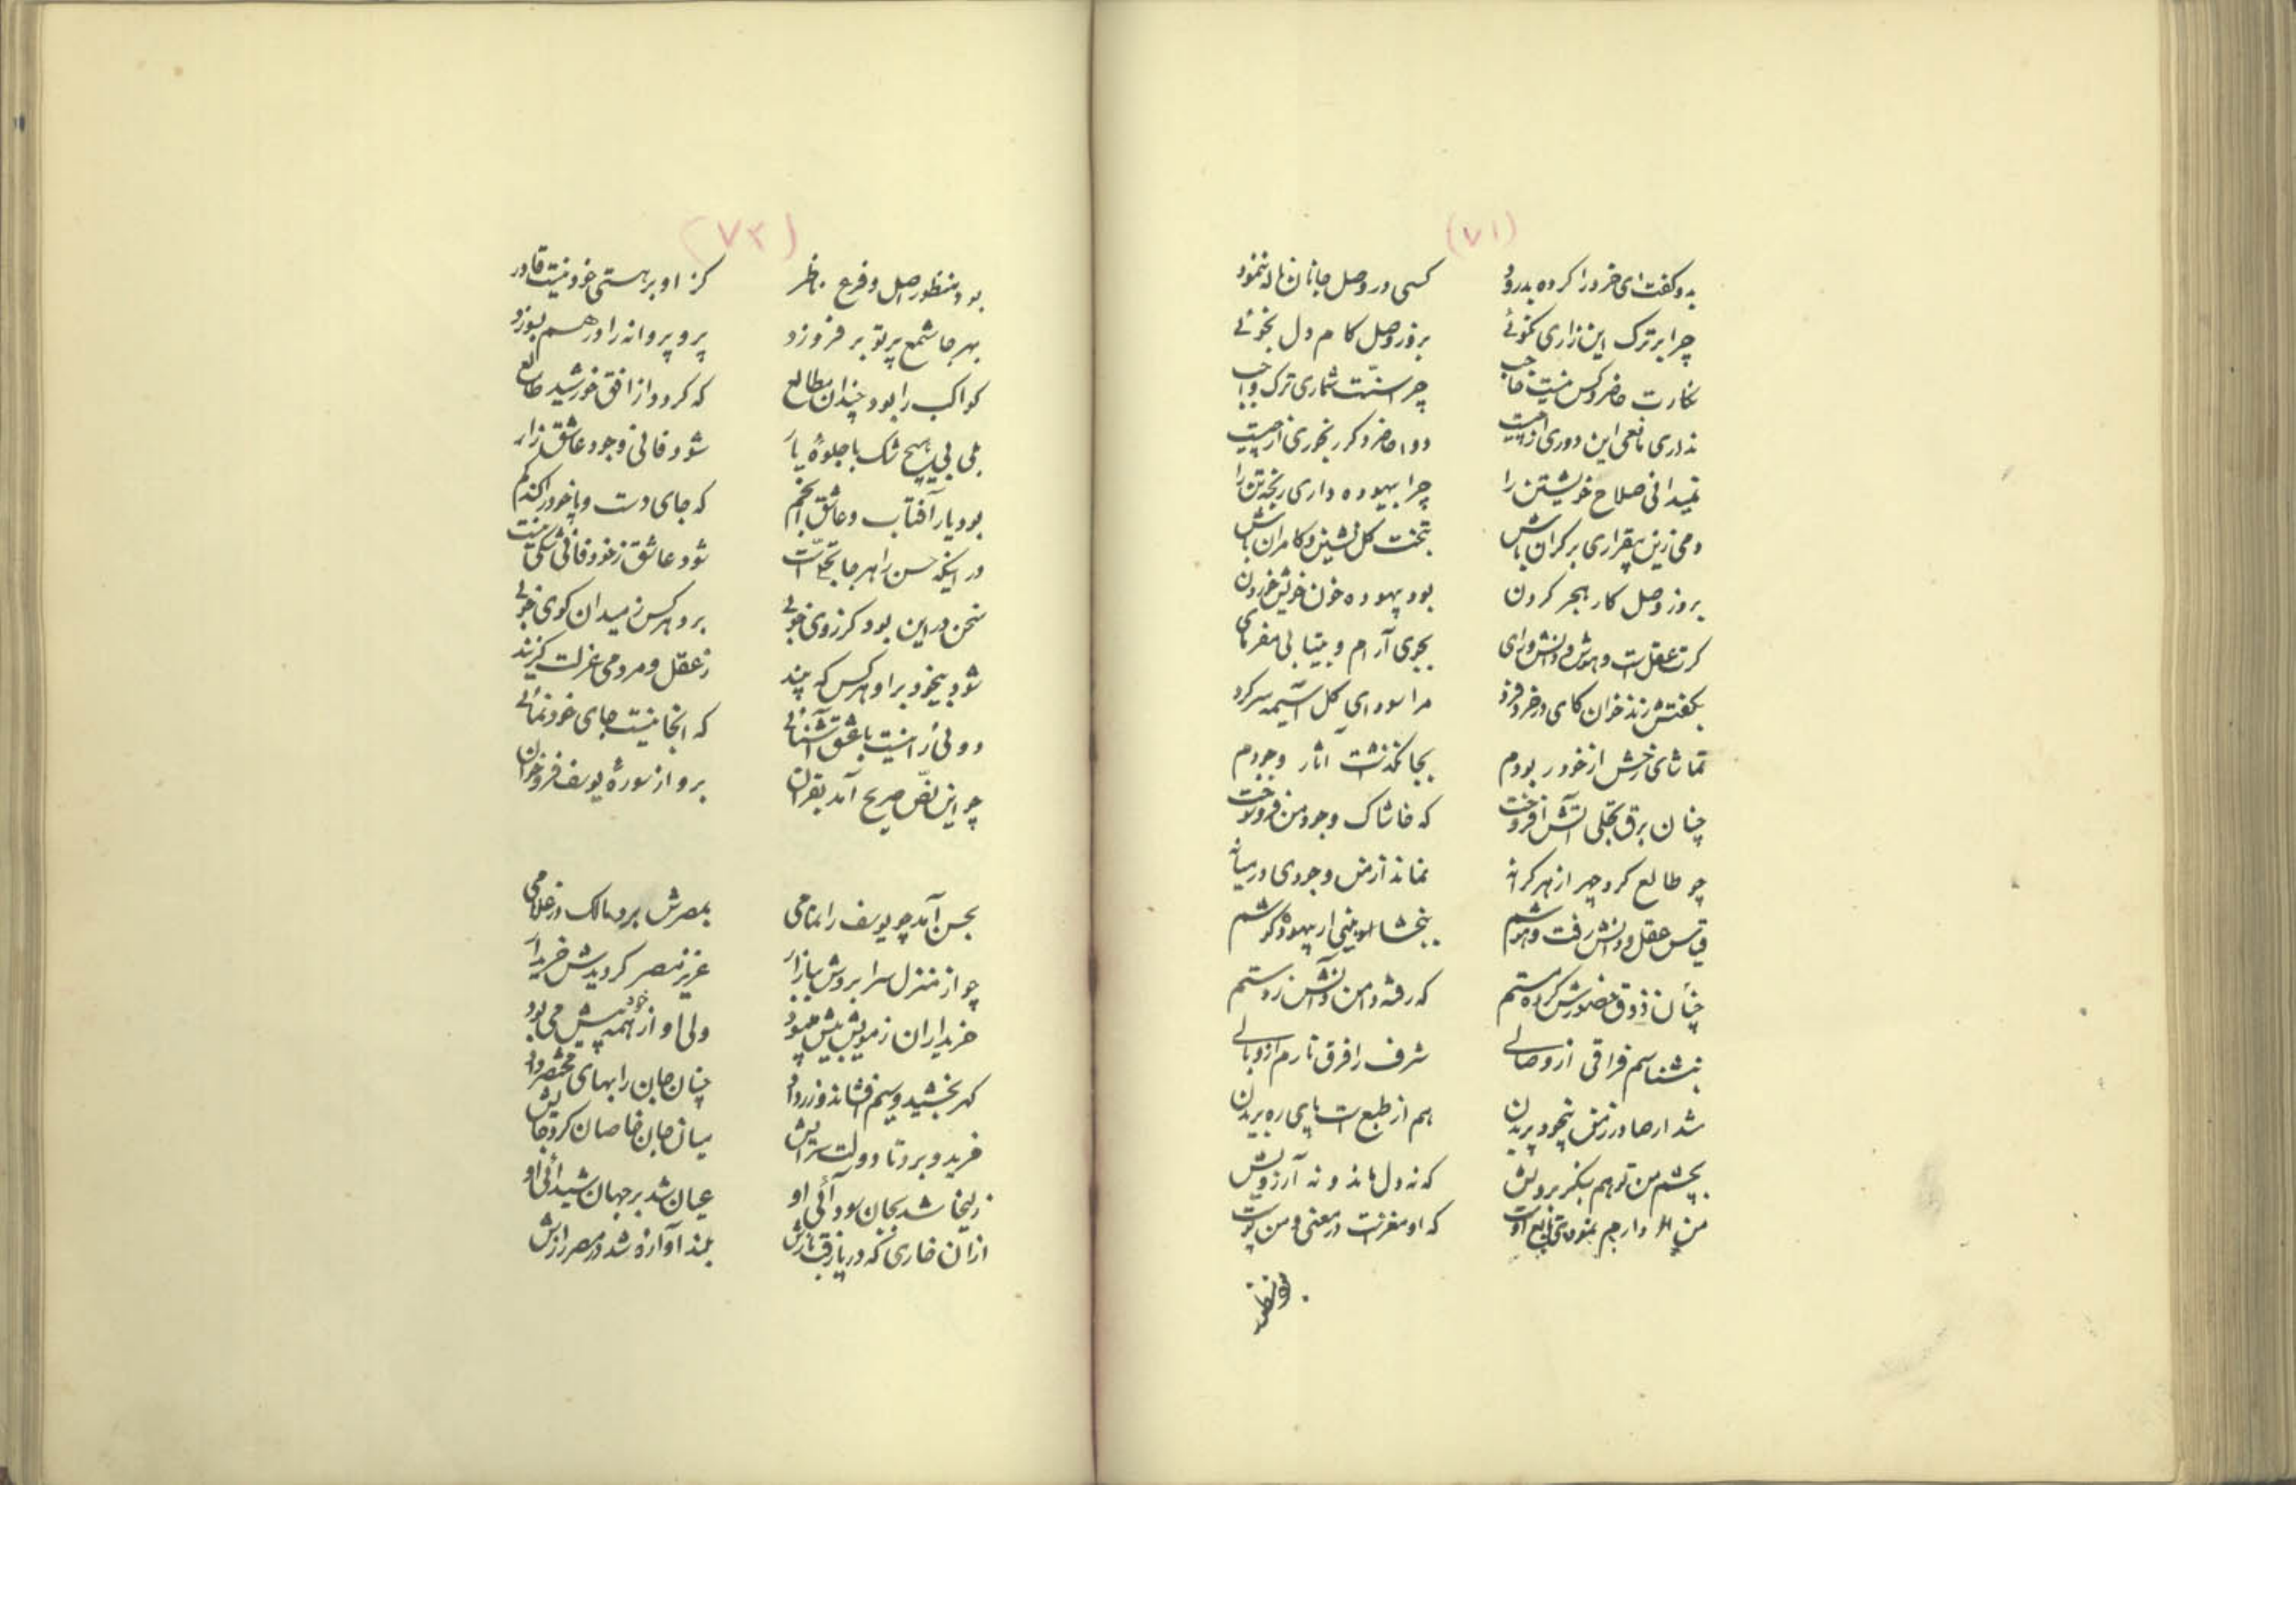 (۷۱)
بدو گفت ای خرد را کرده بدرود کسی در وصل جانان ناله ننمود
چرا بر ترک این زاری نکوئی بروز وصل کام دل نجوئی
نکارت حاضر و کس نیست حاجب چرا سنّت شماری ترک واجب
نداری مانعی این دوری از چیست دوا حاضر دکر رنجوری از چیست
نمیدانی صلاح خویشتن را چرا بیهوده داری رنجه تن را
دمی زین بیقراری بر کران باش بتخت کل نشین و کامران باش
بروز وصل کار هجر کردن بود بیهوده خون خویش خوردن
کرت عقلست و هوش و دانش و رای بجوی آرام و بیتابی مفرمای
بگفتش زند خوان کای در خرد فرد مرا سودای کل آسیمه سر کرد
تماشای رخش از خود ربودم بجا نکذشت آثار وجودم
چنان برق تجلی آتش افروخت که خاشاک وجود من فرو سوخت
چو طالع کرد چهر از هر کرانه نماند از من وجودی در میانه
قیاس عقل و دانش رفت و هوشم ببخشا بینی ار بیهوده کوشم
چنان ذوق حضورش کرده مستم که رفته دامن دانش ز دستم
بنشناسم فراقی از وصالی شرف را فرق نارم از وبالی
شد ار صادر ز من بیخود پریدن هم از طبع است پای ره بریدن
بچشم من تو هم بنگر برویش که نه دل ماند و نه آرزویش
من ار دارم نمودی تابع اوست که او مغزست در معنی و من پوست
(۷۲)
بود منظور اصل و فرع ناظر کز او بر هستی خود نیست قادر
بهر جا شمع پرتو بر فروزد پر و پروانه را در هم بسوزد
کواکب را بود چندان مطالع که کردد از افق خورشید طالع
بلی بی هیچ شک با جلوهٔ یار شود فانی وجود عاشق زار
بود یار آفتاب و عاشق انجم که جای دست و پا خود را کند کم
در اینکه حسن را هر جا تجلّیست شود عاشق ز خود فانی شکی نیست
سخن در این بود کز روی خوبی برد هر کس ز میدان کوی خوبی
شود بیخود بر او هر کس که بیند ز عقل و مردمی عزلت گزیند
دوئی را نیست با عشق آشنائی که انجا نیست جای خودنمائی
چو این نصّ صریح آمد بقران برو از سورهٔ یوسف فرو خوان
بحسن آمد چو یوسف را تمامی بمصرش برد مالک در غلامی
چو از منزل سرا بردش ببازار عزیز مصر کردیدش خریدار
خریداران ز مویش بیش بود ولی او از همه خود پیش می بود
کهر بخشید و سیم افشاند و زر داد چنان جان را بهای مختصر داد
خرید و برد تا دولت سرایش میان جان خاصان کرد جایش
زلیخا شد بجان سودائی او عیان شد بر جهان شیدائی او
ازان خاری که در پا رفت بازش بلند آوازه شد در مصر رازش